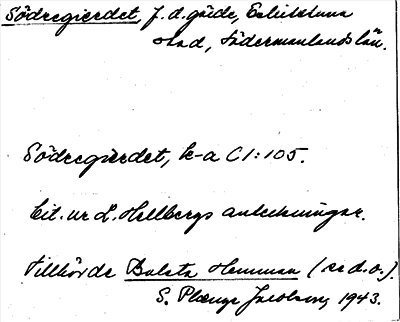 Södregierdet, f.d. gärde, Eskilstuna
stad, Södermanlands län.
Södregierdet, k-a C1:105.
Cit. ur L. Hellbergs anteckningar.
Tillhörde Balsta Hemman (se d.o.).
S. Plænge Jacobson, 1943.